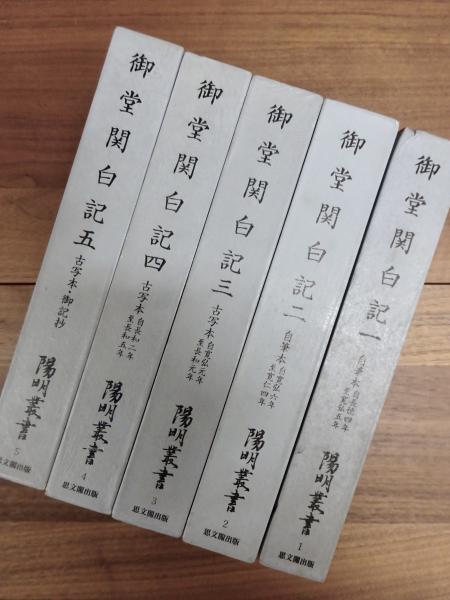 御堂関白記一
自筆本
自長徳四年
至寛弘五年
陽明叢書
1
思文閣出版
御堂関白記二
自筆本
自寛弘六年
至寛仁四年
陽明叢書
2
思文閣出版
御堂関白記三
古写本
自寛弘元年
至長和元年
陽明叢書
3
思文閣出版
御堂関白記四
古写本
自長和二年
至長和五年
陽明叢書
4
思文閣出版
御堂関白記五
古写本・御記抄
陽明叢書
5
思文閣出版